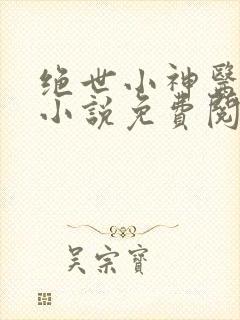 绝世小神醫
小說免費閱
吴宗寶